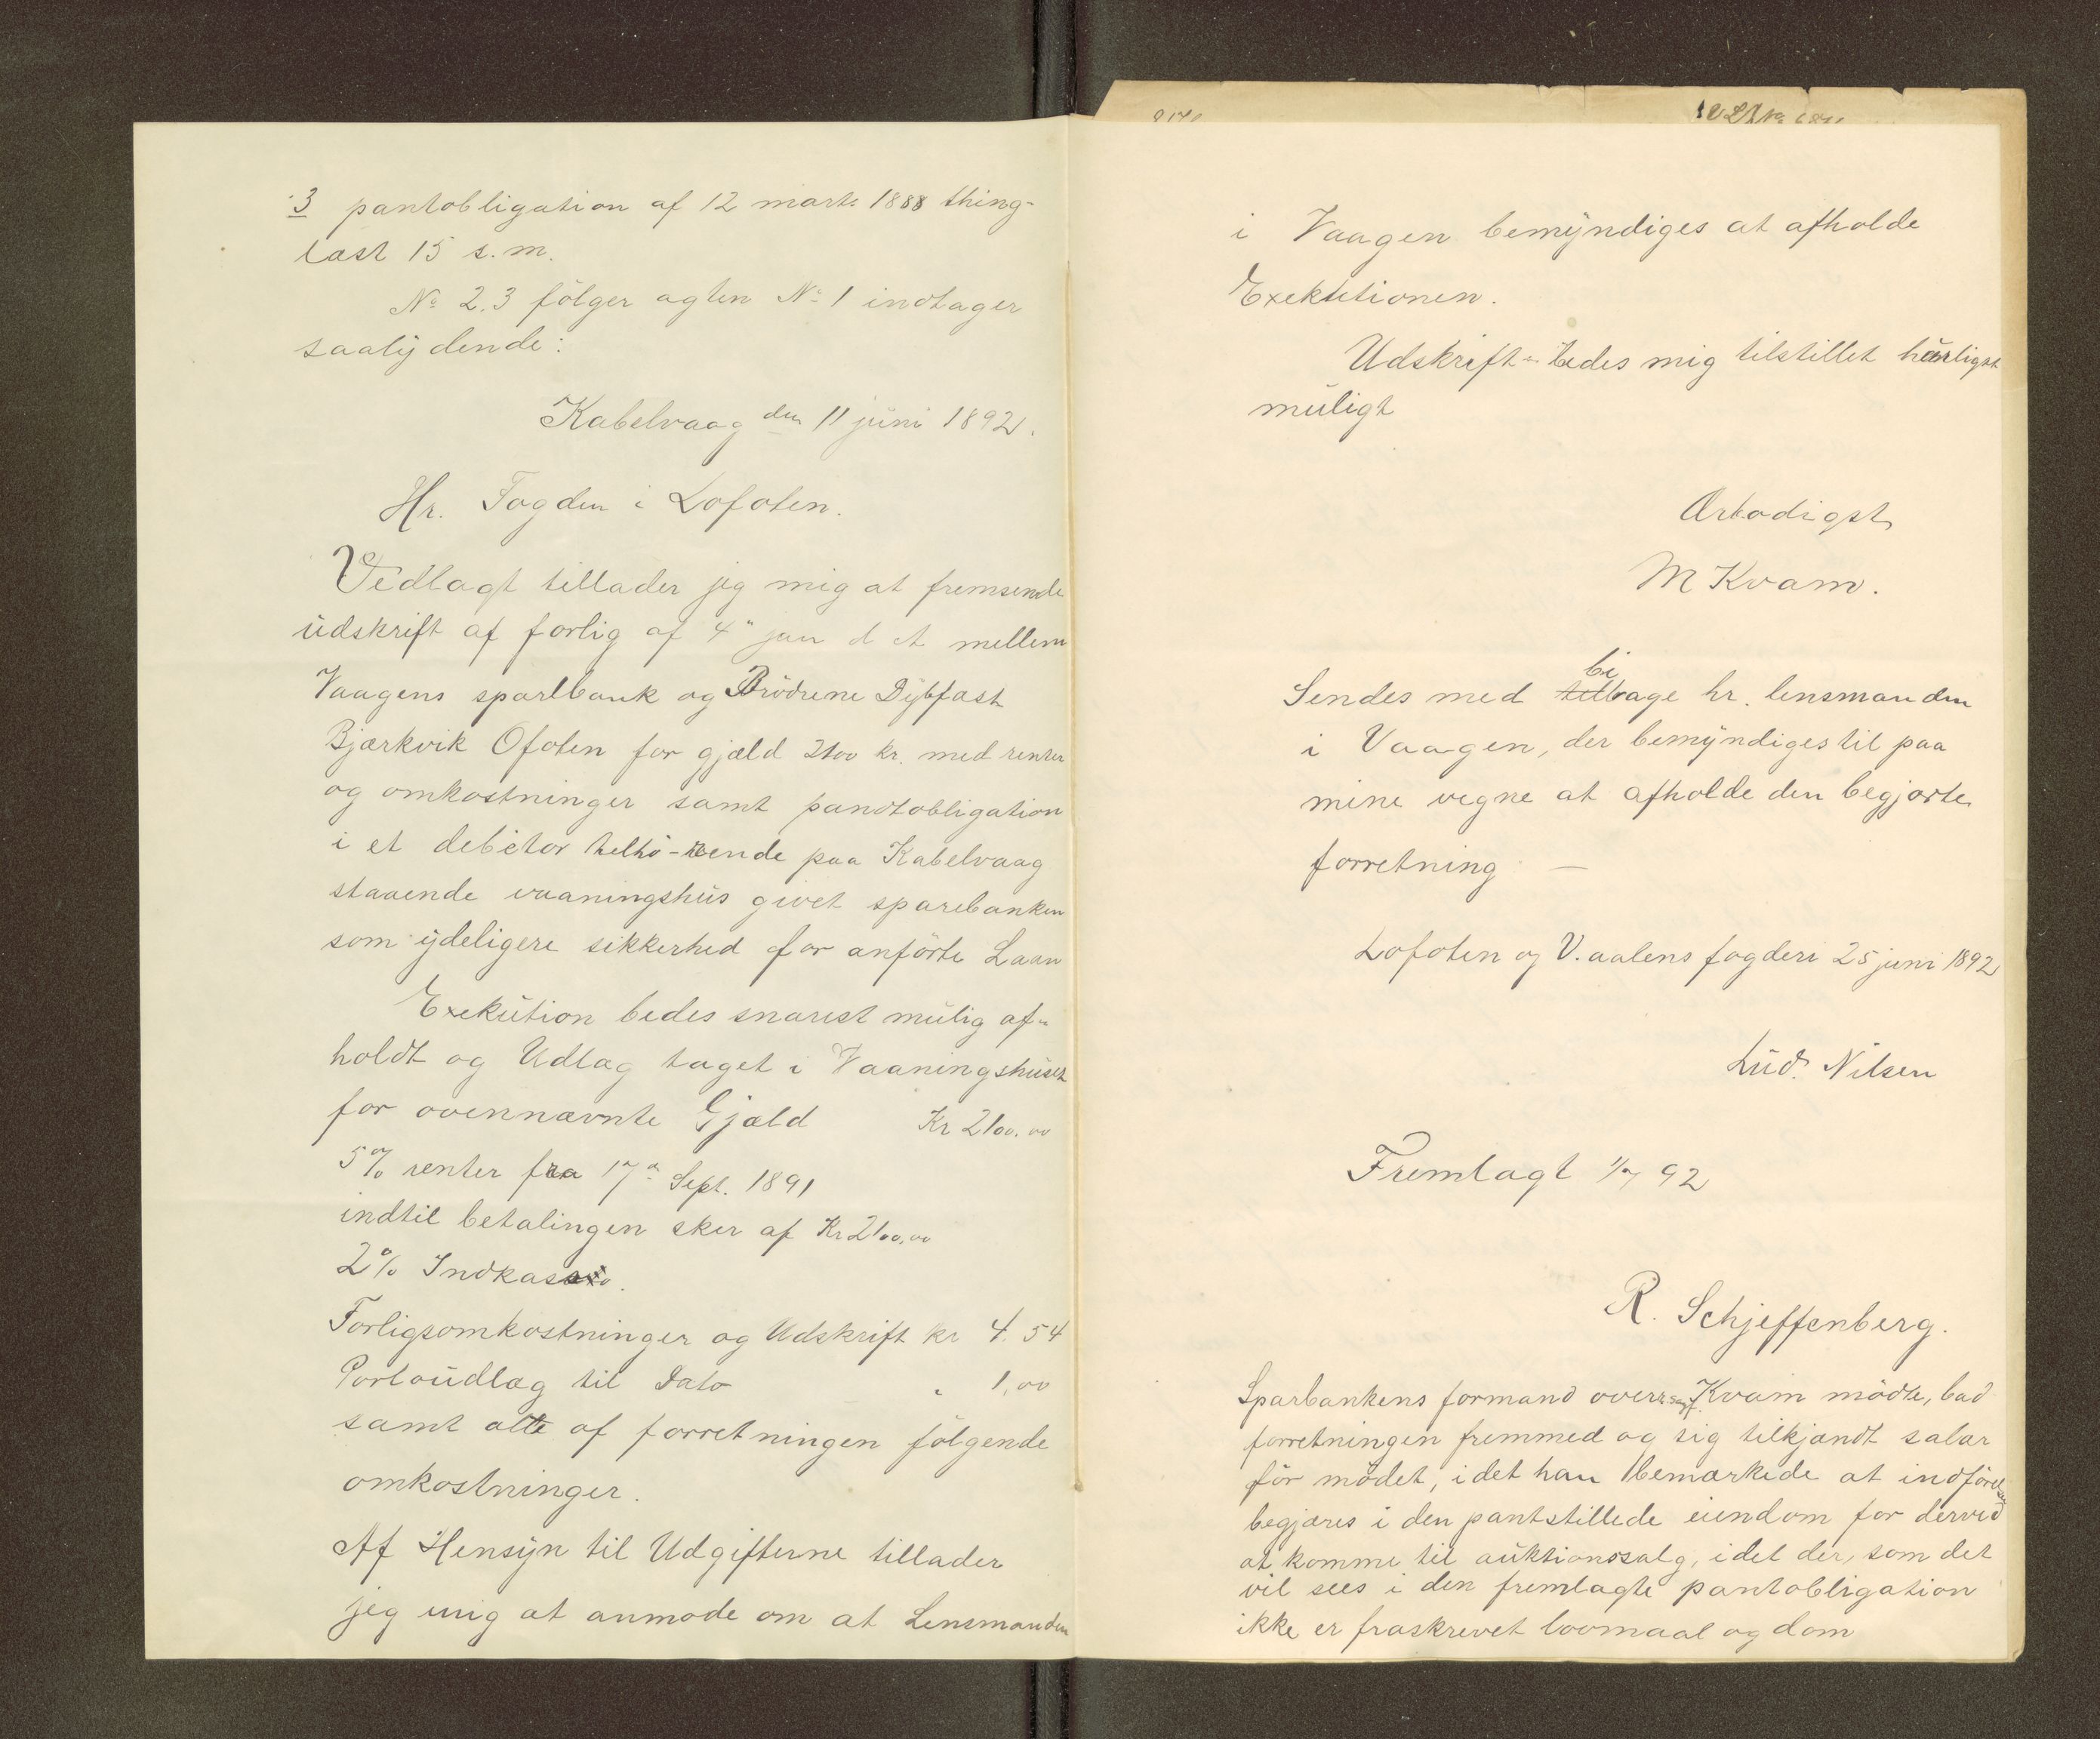 3 pantobligation af 12 marts 1888 thing-
læst 15 s.m.
No 2.3 fölger agten No 1 indtager
saalydende:
Kabelvaag den 11 juni 1892.
Hr. Fogden i Lofoten.
Vedlagt tillader jeg mig at fremsende
udskrift af forlig af 4" jan d A mellem
Vaagens sparebank og Brödrene Dybfast
Bjærkvik Ofoten for gjæld 2100 kr. med renter
og omkostninger samt pandtobligation
i et debitor telhö-rende paa Kabelvaag
staaende vaaningshus givet sparebanken
som ydeligere sikkerhed for anförte Laan
Exekution bedes snarest mulig af-
holdt og Udlæg taget i Vaaningshuset
for ovennævnte Gjæld Kr 2100.00
5% renter fra 17de Sept. 1891
indtil betalingen sker af Kr 2100.00
2% Indkasso.
Forligsomkostninger og Udskrift kr 4.54
Portoudlæg til Dato " 1,00
samt alle af forretningen fölgende
omkostninger.
Af Hensyn til Udgifterne tillader
jeg mig at anmode om at Lensmanden
i Vaagen bemyndiges at afholde
Exekutionen.
Udskrift bedes mig tilstillet hurtigst
muligt
Ærbødigst
M Kvam.
bi
Sendes med tilbage hr. lensmanden
i Vaagen, der bemyndiges til paa
mine vegne at afholde den begjærte
forretning —
Lofoten og V.aalens fogderi 25 juni 1892
Lud. Nilsen
Fremlagt 1/7 92
R. Schjeffenberg.
Sparbankens formand overretssagf. Kvam mödte, bad
forretningen fremmed og sig tilkjændt salær
för mödet, idet han bemærkede at indförelse
begjæres i den pantstillede eiendom for derved
at komme til auktionssalg, idet der, som det
vil sees i den fremlagte pantobligation
ikke er fraskrevet lovmaal og dom